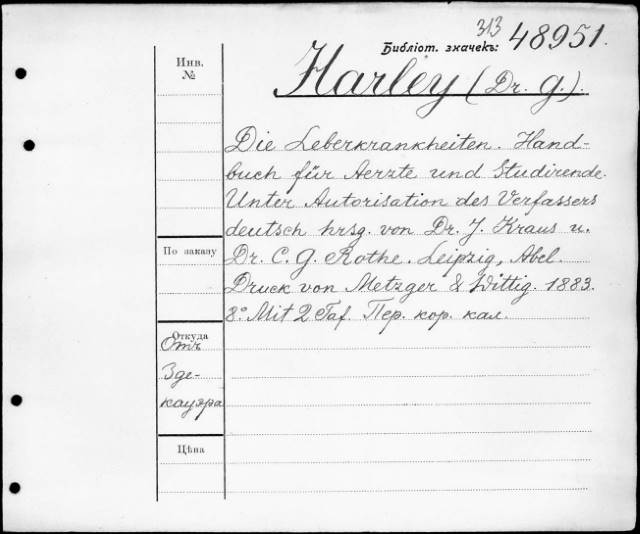 313
Библіот. значекъ: 48951.
Инв.
№
Harley (Dr. G.).
Die Leberkrankheiten. Hand-
buch für Aerzte und Studirende.
Unter Autorisation des Verfassers
deutsch hrsg. von Dr. J. Kraus u.
По заказу
Dr. C. G. Rothe. Leipzig, Abel.
Druck von Metzger & Wittig. 1883.
8° Mit 2 Taf. Пер. кор. кал.
Откуда
Отъ
Зде-
кауэра
Цѣна